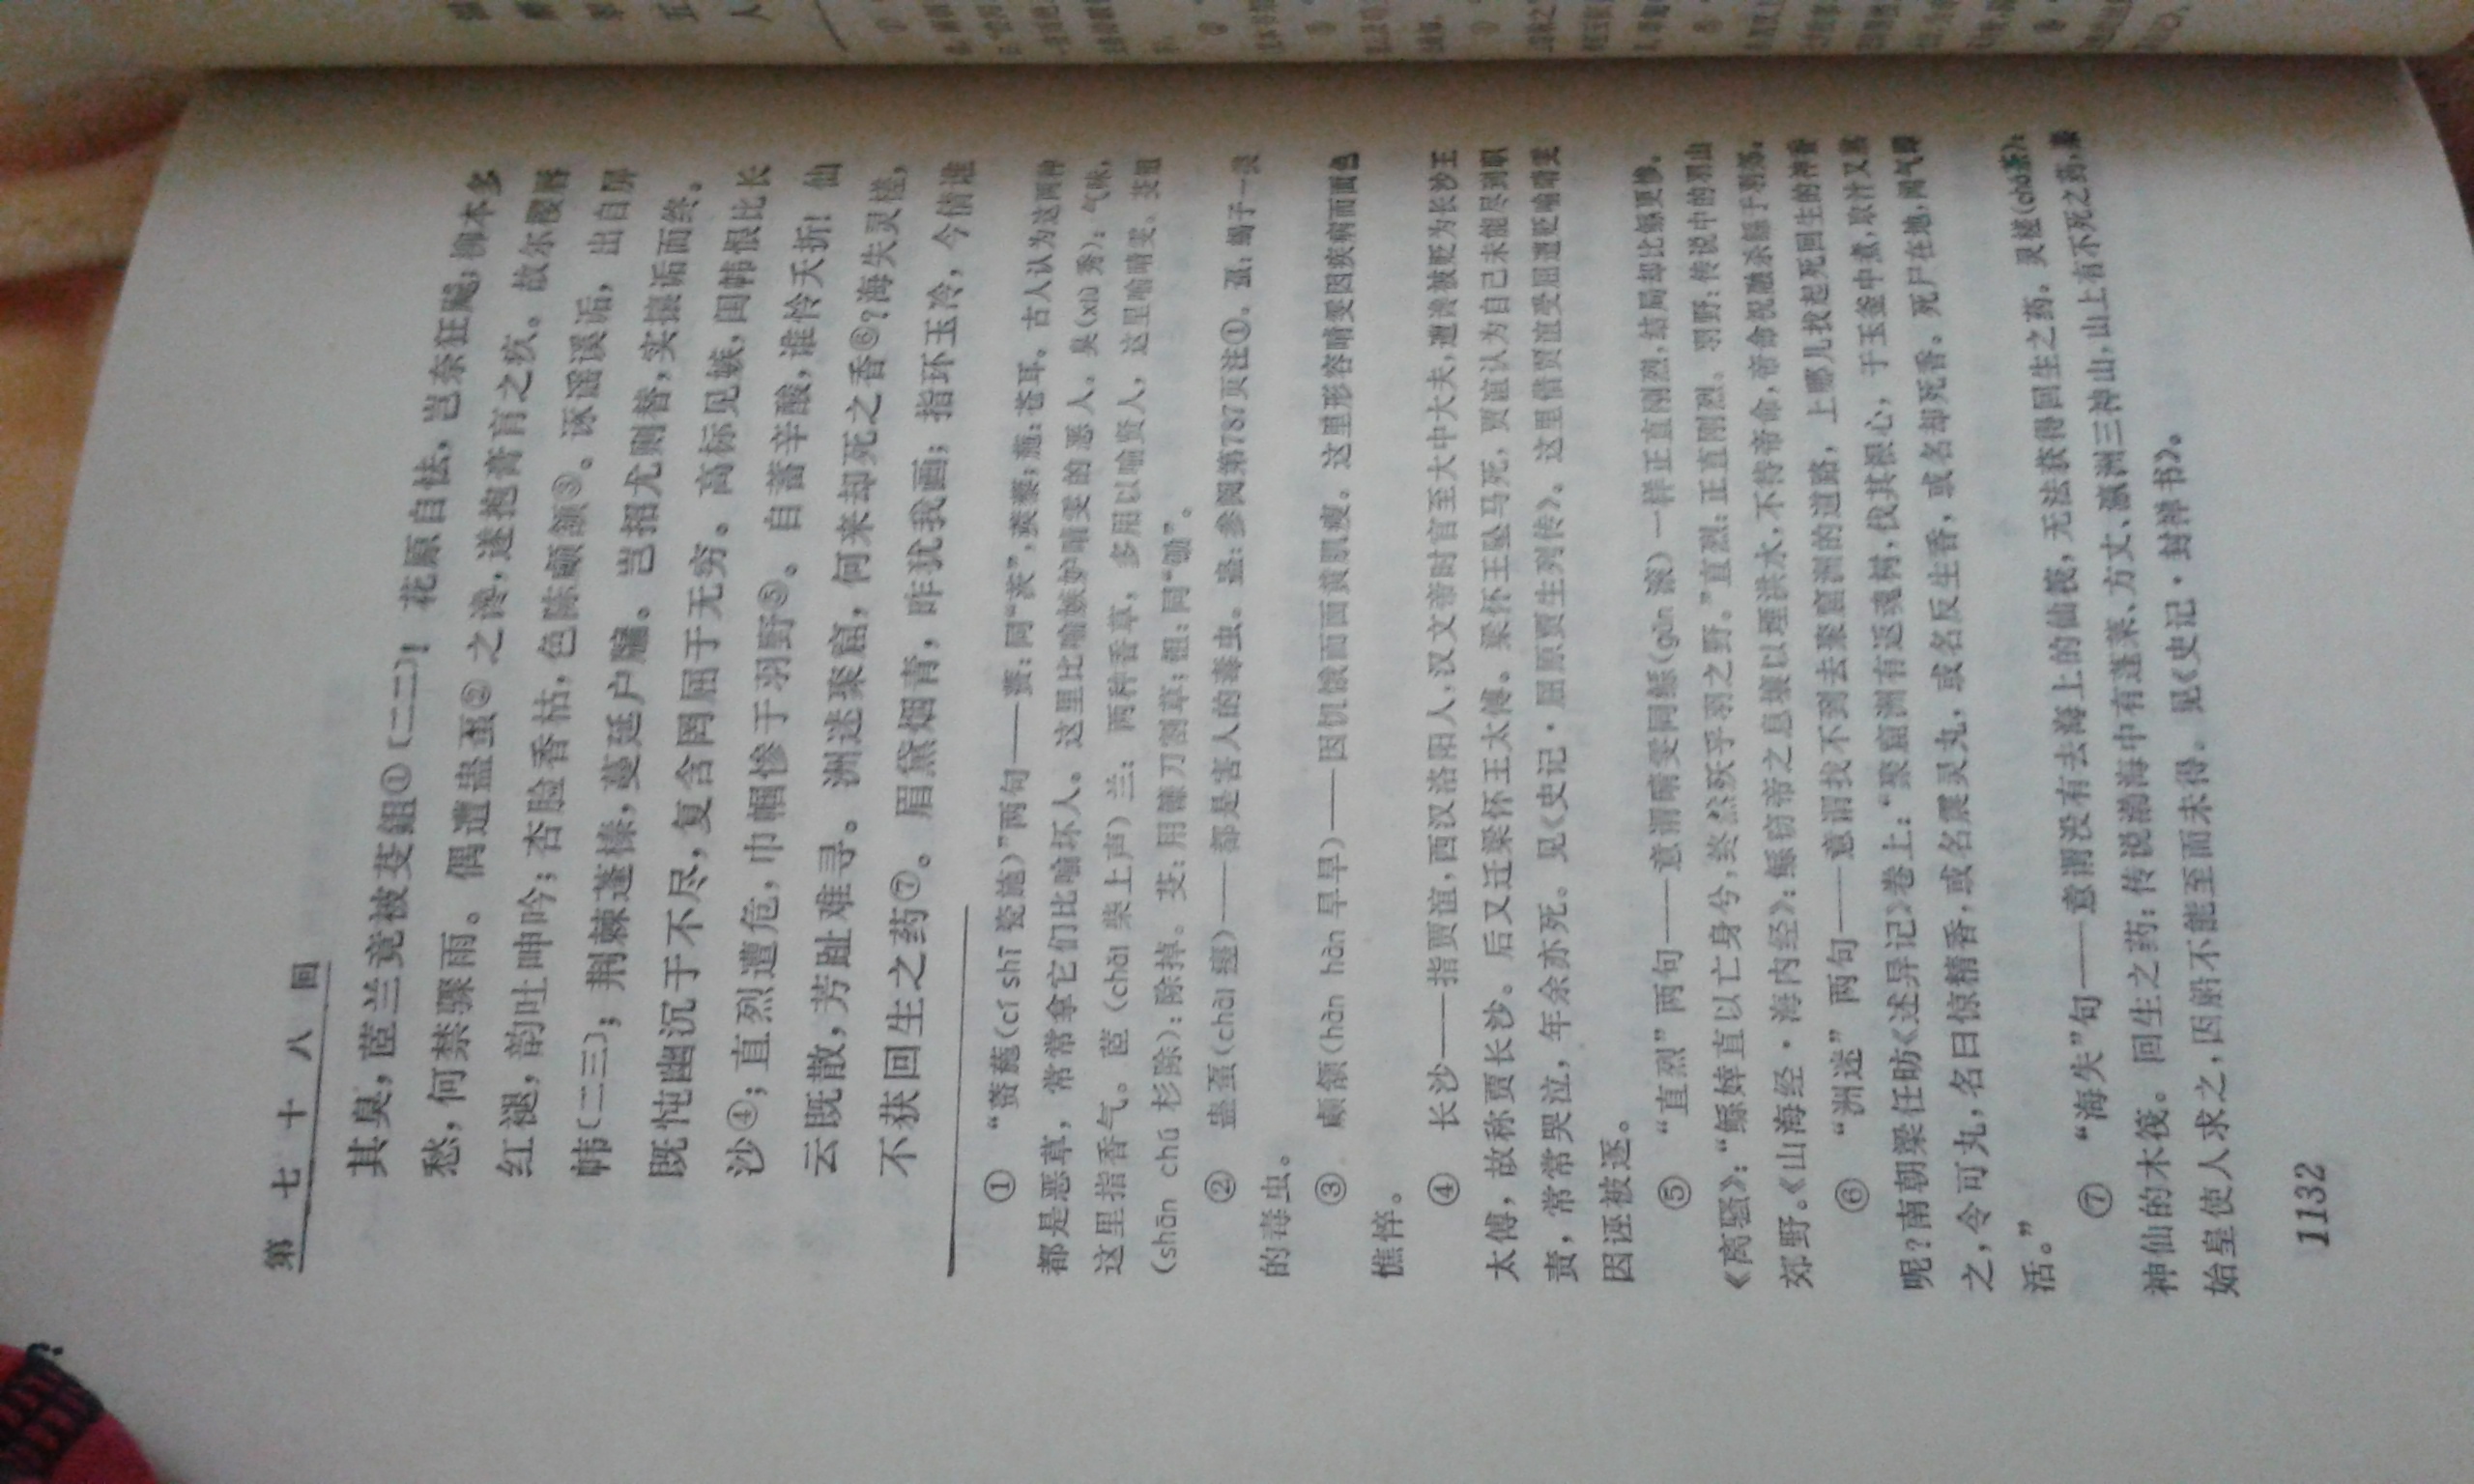 第七十八回
其臭，茝兰竟被芟鉏①〔二二〕！花原自怯，岂奈狂飚；柳本多
愁，何禁骤雨。偶遭蛊虿②之谗，遂抱膏肓之疚。故尔樱唇
红褪，韵吐呻吟；杏脸香枯，色陈顑颔③。诼谣謑诟，出自屏
帏〔二三〕；荆棘蓬榛，蔓延户牖。岂招尤则替，实攘诟而终。
既忳幽沉于不尽，复含罔屈于无穷。高标见嫉，闺帏恨比长
沙④；直烈遭危，巾帼惨于羽野⑤。自蓄辛酸，谁怜夭折！仙
云既散，芳趾难寻。洲迷聚窟，何来却死之香⑥？海失灵槎，
不获回生之药⑦。眉黛烟青，昨犹我画；指环玉冷，今倩谁
① “薋葹(cí shī 瓷施)”两句——薋：同“茨”，蒺藜；葹：苍耳。古人认为这两种
都是恶草，常常拿它们比喻坏人。这里比喻嫉妒晴雯的恶人。臭(xiù 秀)：气味，
这里指香气。茝(chǎi 柴上声)兰：两种香草，多用以喻贤人，这里喻晴雯。芟鉏
(shān chú 杉除)：除掉。芟：用镰刀割草；鉏：同“锄”。
② 蛊虿(chài 瘥)——都是害人的毒虫。蛊：参阅第787页注①。虿：蝎子一类
的毒虫。
③ 顑颔(hàn hàn 旱旱)——因饥饿而面黄肌瘦。这里形容晴雯因疾病而面色
憔悴。
④ 长沙——指贾谊，西汉洛阳人，汉文帝时官至大中大夫，遭谗被贬为长沙王
太傅，故称贾长沙。后又迁梁怀王太傅。梁怀王坠马死，贾谊认为自己未能尽到职
责，常常哭泣，年余亦死。见《史记·屈原贾生列传》。这里借贾谊受屈遭贬喻晴雯
因诬被逐。
⑤ “直烈”两句——意谓晴雯同鲧(gǔn 滚)一样正直刚烈，结局却比鲧更惨。
《离骚》：“鲧婞直以亡身兮，终然殀乎羽之野。”直烈：正直刚烈。羽野：传说中的羽山
郊野。《山海经·海内经》：鲧窃帝之息壤以堙洪水，不待帝命，帝命祝融杀鲧于羽郊。
⑥ “洲迷”两句——意谓找不到去聚窟洲的道路，上哪儿找起死回生的神香
呢？南朝梁任昉《述异记》卷上：“聚窟洲有返魂树，伐其根心，于玉釜中煮，取汁又熬
之，令可丸，名曰惊精香，或名震灵丸，或名反生香，或名却死香。死尸在地，闻气即
活。”
⑦ “海失”句——意谓没有去海上的仙筏，无法获得回生之药。灵槎(chá茶)：
神仙的木筏。回生之药：传说渤海中有蓬莱、方丈、瀛洲三神山，山上有不死之药，秦
始皇使人求之，因船不能至而未得。见《史记·封禅书》。
1132